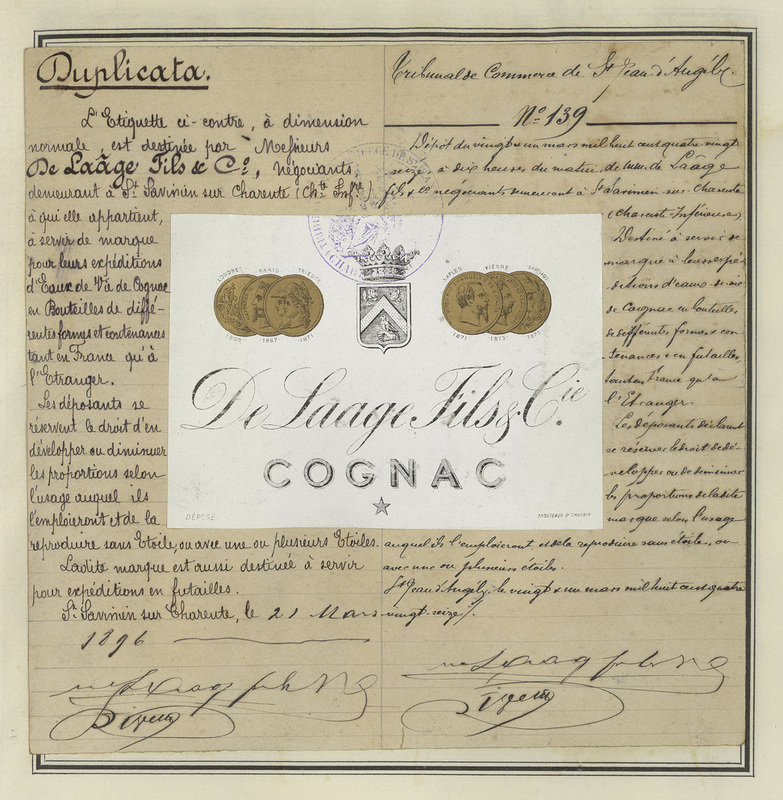 Duplicata.
L'Etiquette ci-contre, à dimension
normale, est destinée par Messieurs
De Laâge Fils & Cº, négociants
demeurant à St Savinien sur Charente (Chte Infre)
à qui elle appartient,
à servir de marque
pour leurs expéditions
d'Eaux de Vie de Cognac
en Bouteilles de diffé-
rentes formes et contenances
tant en France qu'à
l'Etranger.
Les déposants se
réservent le droit d'en
développer ou diminuer
les proportions selon
l'usage auquel ils
l'emploieront et de la
reproduire sans Etoile, ou avec une ou plusieurs Etoiles.
Ladite marque est aussi destinée à servir
pour expéditions en futailles.
St Savinien sur Charente, le 21 Mars
1896
Tribunal de Commerce de St Jean d'Angély.
Nº 139
Dépôt du vingt & un mars mil huit cent quatre vingt
seize à dix heures du matin, de MM. de Laâge
fils & Cie négociants demeurant à St Savinien sur Charente
(Charente Inférieure)
Destiné à servir de
marque à leurs expé-
ditions d'eaux-de-vie
de Cognac en bouteilles
de différentes formes & con-
tenances & en futailles,
tant en France qu'à
l'Etranger.
Les déposants déclarent
se réserver le droit de dé-
velopper ou de diminuer
les proportions de ladite
marque selon l'usage
auquel ils l'emploieront, et de la reproduire sans étoile, ou
avec une ou plusieurs étoiles.
St Jean d'Angély, le vingt & un mars mil huit cent quatre
vingt-seize.
LONDRES PARIS TRIESTE
1867 1871
NAPLES VIENNE
1871 1873
De Laage Fils & Cie.
COGNAC
DÉPOSÉ.